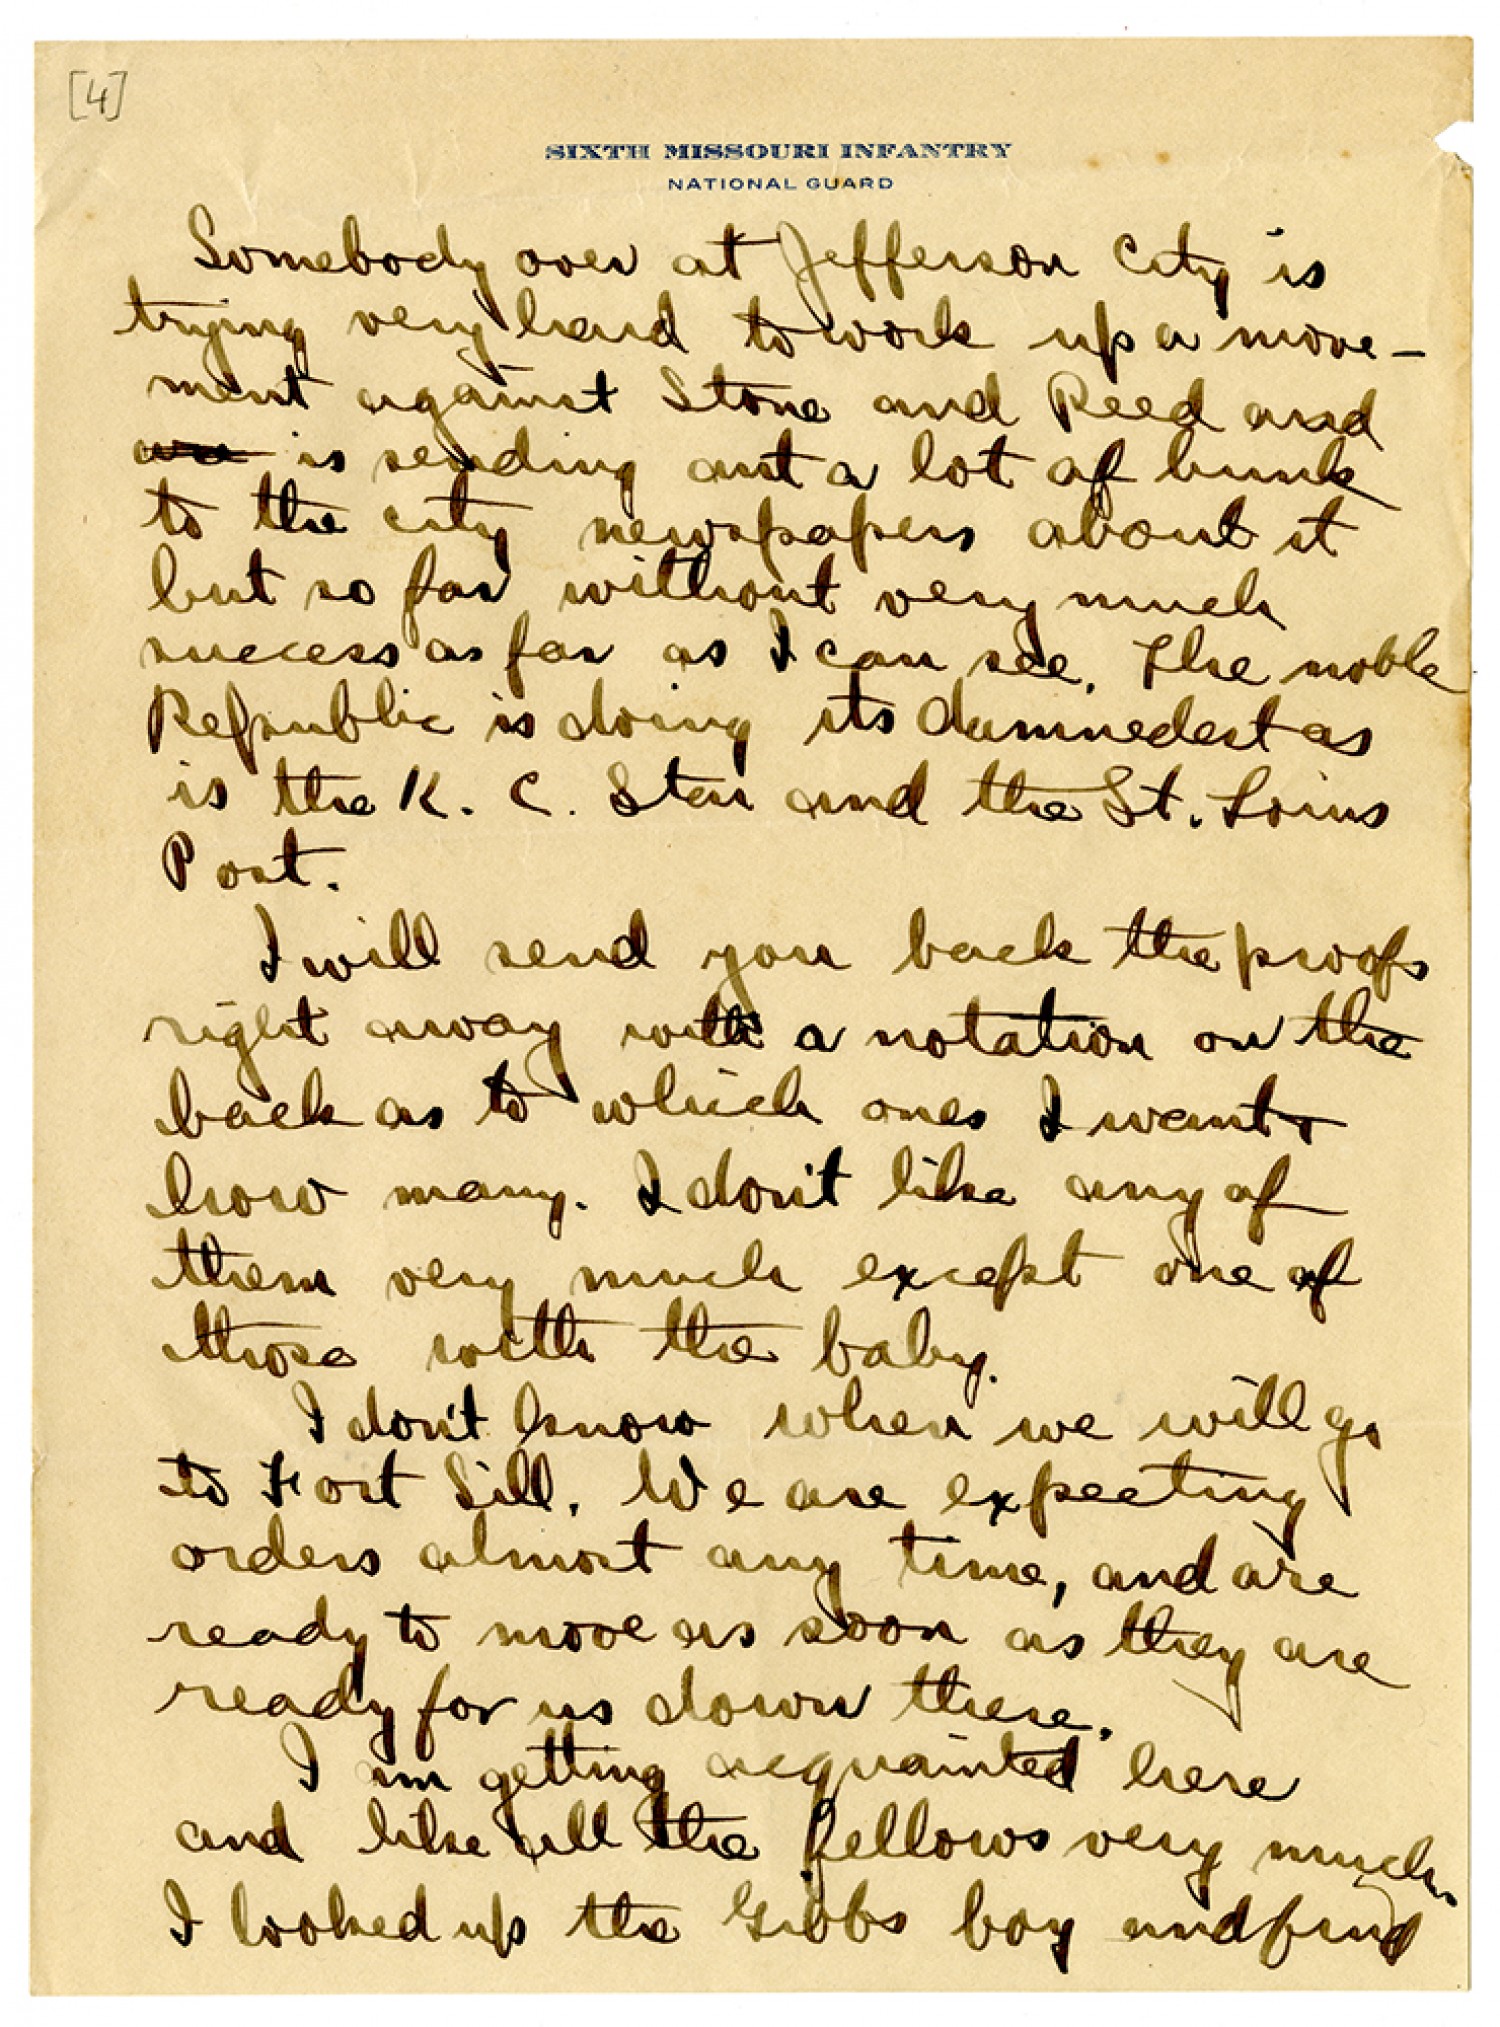 [4]
SIXTH MISSOURI INFANTRY
NATIONAL GUARD
Somebody over at Jefferson City is
trying very hard to work up a move-
ment against Stone and Reed and
is sending out a lot of bunk
to the city newspapers about it
but so far without very much
success as far as I can see. The noble
Republic is doing its damnedest as
is the K. C. Star and the St. Louis
Post.
I will send you back the proofs
right away with a notation on the
back as to which ones I want &
how many. I don't like any of
them very much except one of
those with the baby.
I don't know when we will go
to Fort Sill. We are expecting
orders almost any time, and are
ready to move as soon as they are
ready for us down there.
I am getting acquainted here
and like all the fellows very much.
I looked up the Gibbs boy and find